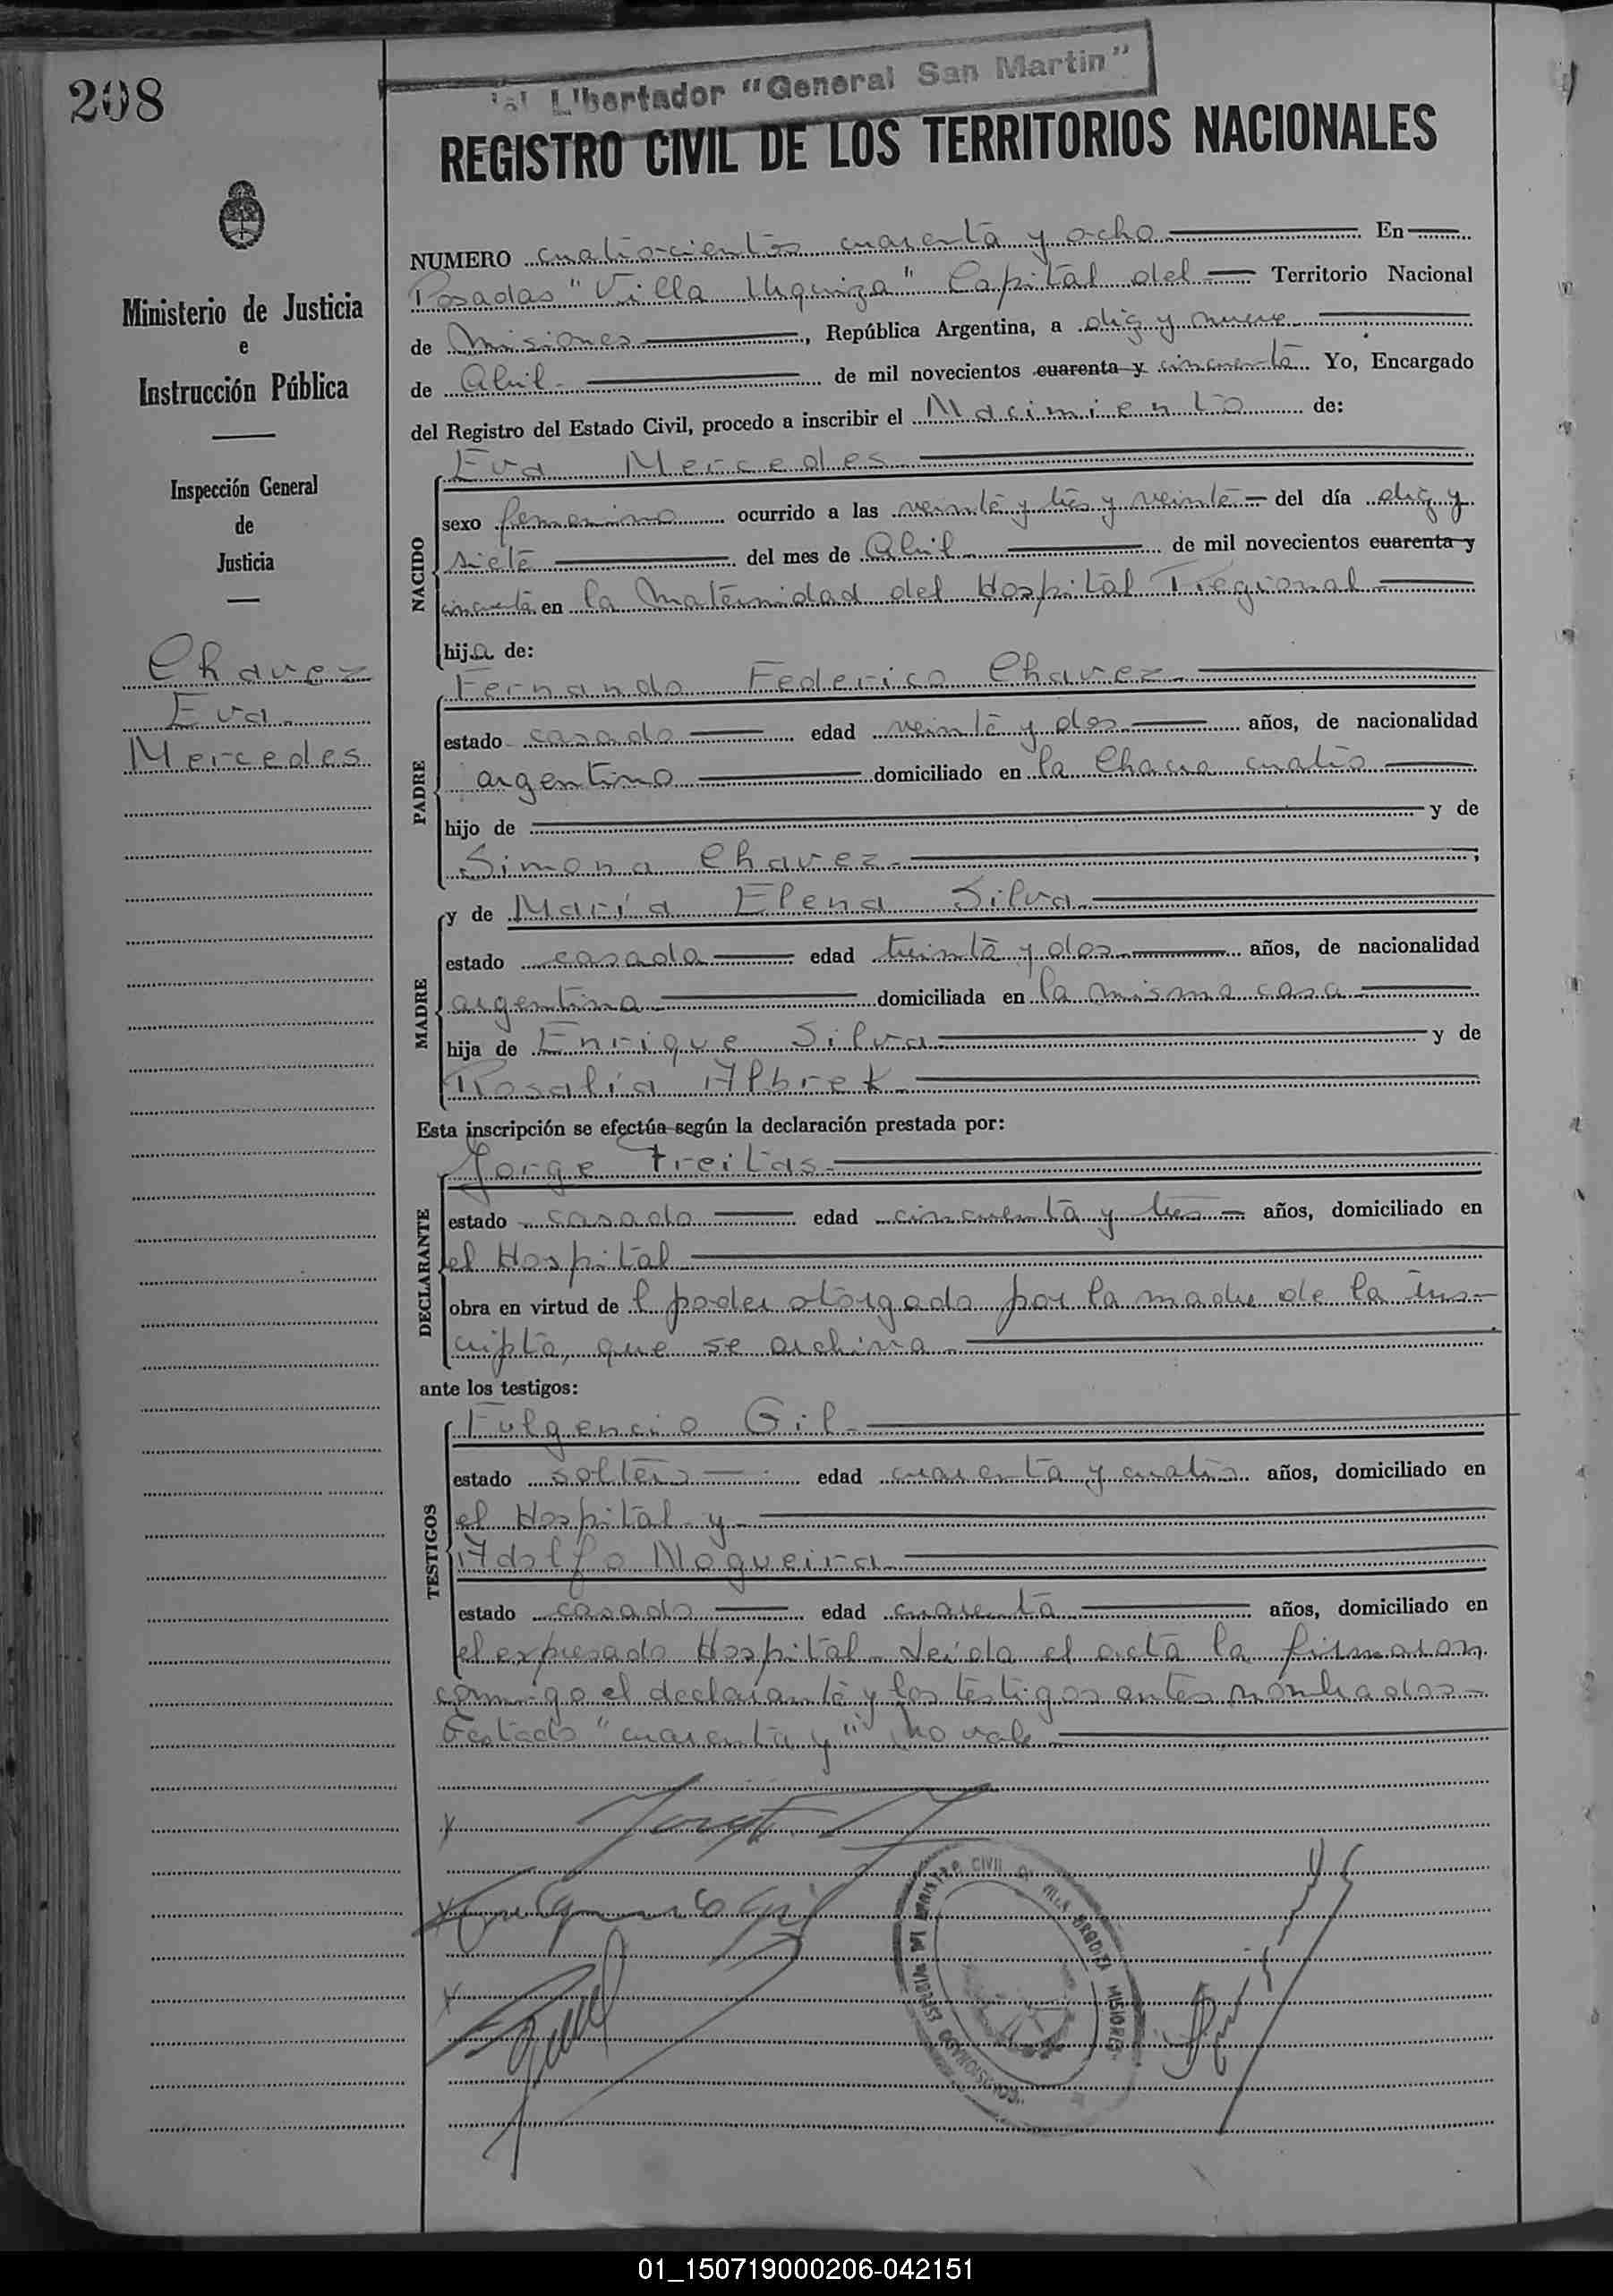 208
Libertador "General San Martin"
REGISTRO CIVIL DE LOS TERRITORIOS NACIONALES
Ministerio de Justicia
e
Instrucción Pública
Inspección General
de
Justicia
Chavez
Eva
Mercedes
NUMERO cuatrocientos cuarenta y ocho En
Posadas "Villa Urquiza" Capital del Territorio Nacional
de Misiones, República Argentina, a diez y nueve
de Abril de mil novecientos cuarenta y cincuenta Yo, Encargado
del Registro del Estado Civil, procedo a inscribir el Nacimiento de:
NACIDO
Eva Mercedes
sexo femenino ocurrido a las veinte y tres y veinte del día diez y
siete del mes de Abril de mil novecientos cuarenta y
cincuenta en la Maternidad del Hospital Regional
hija de:
PADRE
Fernando Federico Chavez
estado casado edad veinte y dos años, de nacionalidad
argentino domiciliado en la Chacra cuatro
hijo de y de
Simona Chavez;
MADRE
y de María Elena Silva
estado casada edad treinta y dos años, de nacionalidad
argentina domiciliada en la misma casa
hija de Enrique Silva y de
Rosalía Albrek
Esta inscripción se efectúa según la declaración prestada por:
DECLARANTE
Jorge Freitas
estado casado edad cincuenta y tres años, domiciliado en
el Hospital
obra en virtud del poder otorgado por la madre de la ins-
cripta, que se archiva
ante los testigos:
TESTIGOS
Fulgencio Gil
estado soltero edad cuarenta y cuatro años, domiciliado en
el Hospital y
Adolfo Nogueira
estado casado edad cuarenta años, domiciliado en
el expresado Hospital. Leída el acta la firmaron
conmigo el declarante y los testigos antes nombrados
Testado "cuarenta y" no vale
01_150719000206-042151